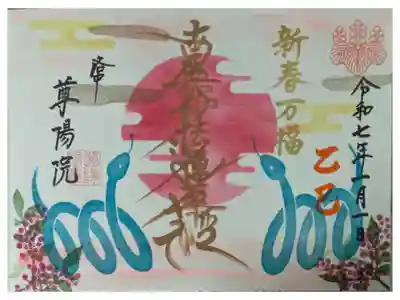 令和七年一月一日
乙巳
新春万福
南無妙法蓮華経
尊陽院